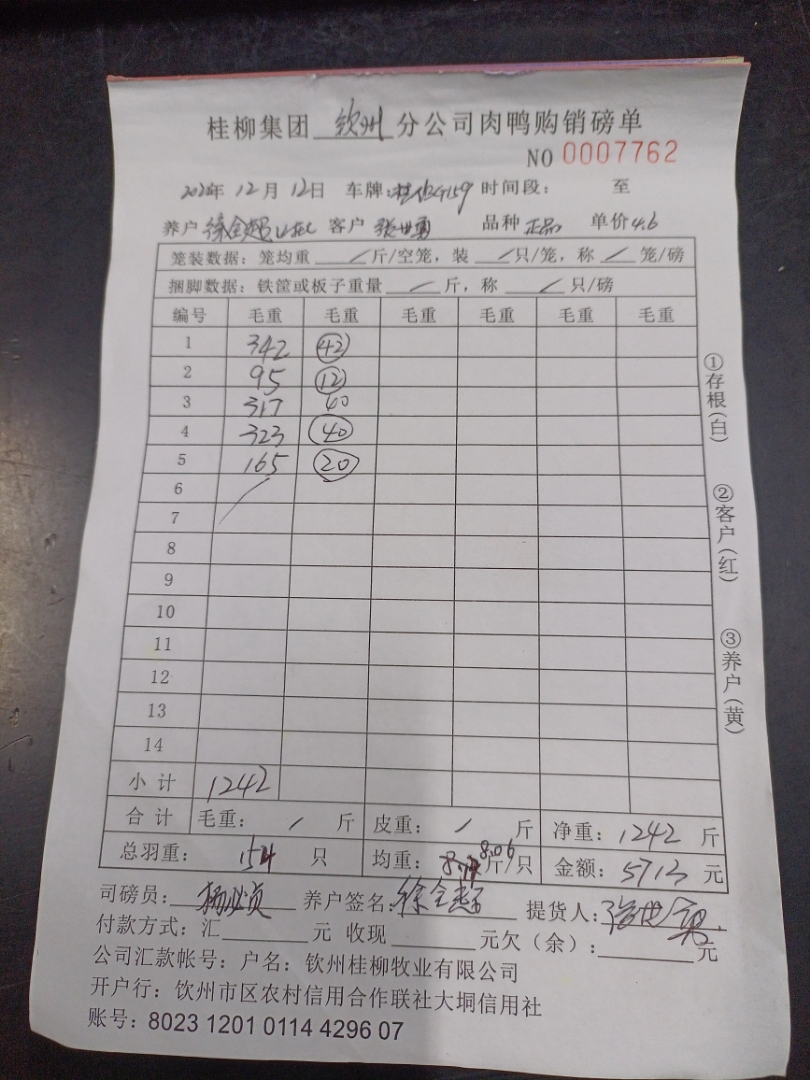 桂柳集团 钦州 分公司肉鸭购销磅单
NO 0007762
12月12日 车牌: 时间段: 至
养户 客户 张世勇 品种 正品 单价 4.6
笼装数据: 笼均重 / 斤/空笼, 装 / 只/笼, 称 / 笼/磅
捆脚数据: 铁筐或板子重量 / 斤, 称 / 只/磅
编号 毛重 毛重 毛重 毛重 毛重 毛重
1 342 42
2 95 12
3 317 40
4 323 40
5 165 20
6
7
8
9
10
11
12
13
14
小计 1242
合计 毛重: / 斤 皮重: / 斤 净重: 1242 斤
总羽重: 154 只 均重: 8.06 斤/只 金额: 5713 元
司磅员: 养户签名: 提货人: 张世勇
付款方式: 汇 元 收现 元欠(余): 元
公司汇款帐号: 户名: 钦州桂柳牧业有限公司
开户行: 钦州市区农村信用合作联社大垌信用社
账号: 8023 1201 0114 4296 07
①存根(白)
②客户(红)
③养户(黄)